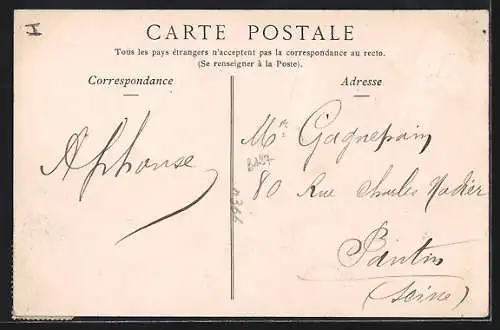 CARTE POSTALE
Tous les pays étrangers n'acceptent pas la correspondance au recto.
(Se renseigner à la Poste).
Correspondance
Adresse
Alphonse
Mr Gagnepain
80 Rue Charles Nodier
Pantin
(Seine)